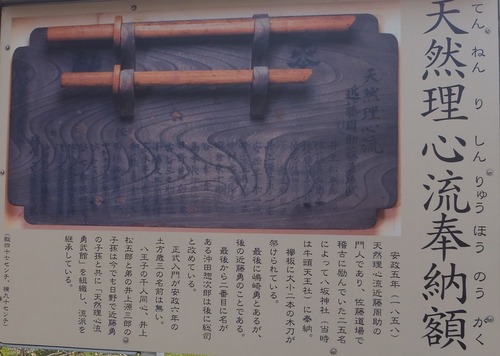 天然理心流奉納額
てんねんりしんりゅうほうのうがく
天然理心流
安政五年(一八五八)
天然理心流近藤周助の
門人であり、佐藤道場で
稽古に励んでいた二五名
によって八坂神社(当時
は牛頭天王社)に奉納
欅板に大小二本の木刀が
架けられている。
最後に嶋崎勇とあるが、
後の近藤勇のことである。
最後から二番目に名が
ある沖田惣次郎は後に総司
と改めている。
正式入門が安政六年の
土方歳三の名前は無い。
八王子の千人同心、井上
松五郎と弟の井上源三郎の
子孫は今でも日野で近藤勇
の子孫と共に「天然理心流
勇武館」を組織し、流派を
継承している。
(縦四十七センチ、横九十センチ)